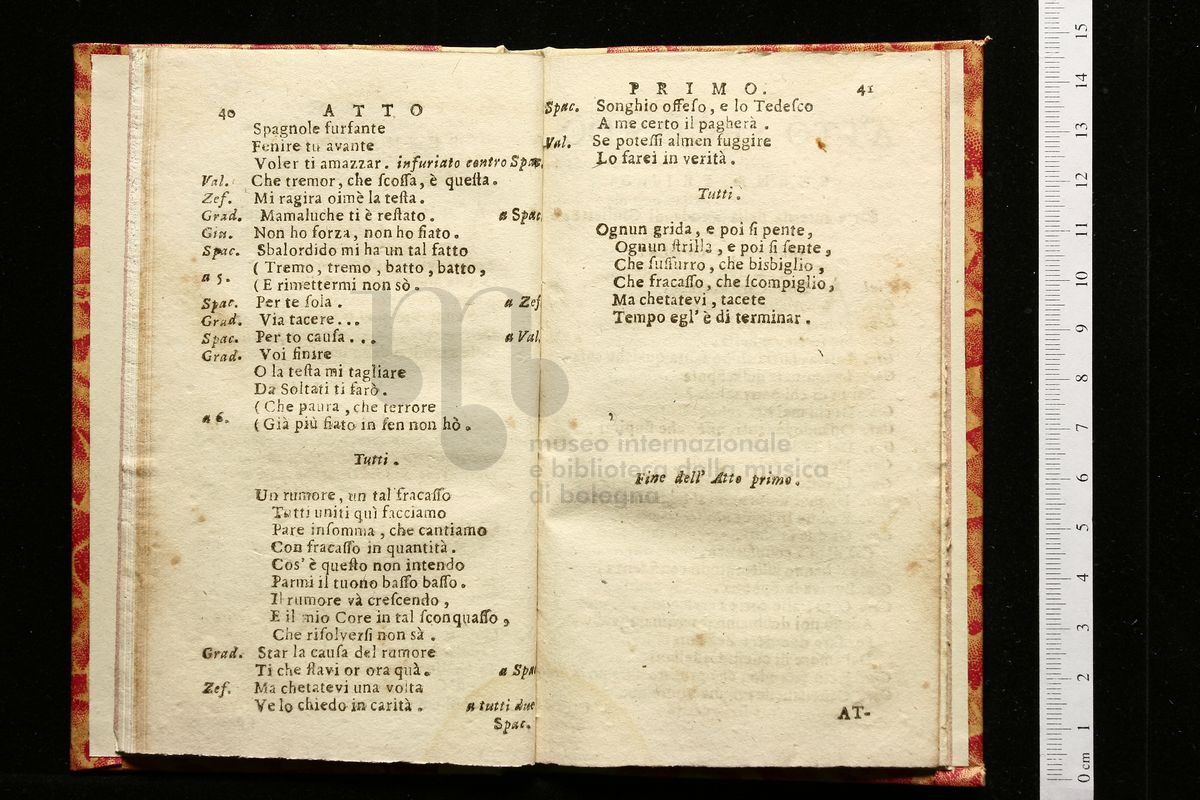 40 ATTO
Spagnole furfante
Fenire tu avante
Voler ti amazzar. infuriato contro Spac.
Val. Che tremor, che ſcoſſa, è queſta.
Zef. Mi ragira oimè la teſta.
Grad. Mamaluche ti è reſtato. a Spac
Giu. Non ho forza, non ho fiato.
Spac. Sbalordido mi ha un tal fatto
a 5. ( Tremo, tremo, batto, batto,
( E rimettermi non sò.
Spac. Per te ſola. a Zef
Grad. Via tacere...
Spac. Per to cauſa... a Val.
Grad. Voi finire
O la teſta mi tagliare
Da Soltati ti farò.
a 6. ( Che paura, che terrore
( Già più fiato in ſen non hò.
Tutti.
Un rumore, un tal fracaſſo
Tutti uniti quì facciamo
Pare inſomma, che cantiamo
Con fracaſſo in quantità.
Cos' è queſto non intendo
Parmi il tuono baſſo baſſo.
Il rumore và creſcendo,
E il mio Core in tal ſconquaſſo,
Che riſolverſi non sà.
Grad. Star la cauſa del rumore
Ti che ſtavi or ora quà. a Spac
Zef. Ma chetatevi una volta
Ve lo chiedo in carità. a tutti due
Spac.
PRIMO. 41
Spac. Songhio offeſo, e lo Tedeſco
A me certo il pagherà.
Val. Se poteſſi almen fuggire
Lo farei in verità.
Tutti.
Ognun grida, e poi ſi pente,
Ognun ſtrilla, e poi ſi ſente,
Che ſuſſurro, che bisbiglio,
Che fracaſſo, che ſcompiglio,
Ma chetatevi, tacete
Tempo egl' è di terminar.
Fine dell' Atto primo.
AT-
museo internazionale
e biblioteca della musica
di bologna
0 cm 1 2 3 4 5 6 7 8 9 10 11 12 13 14 15